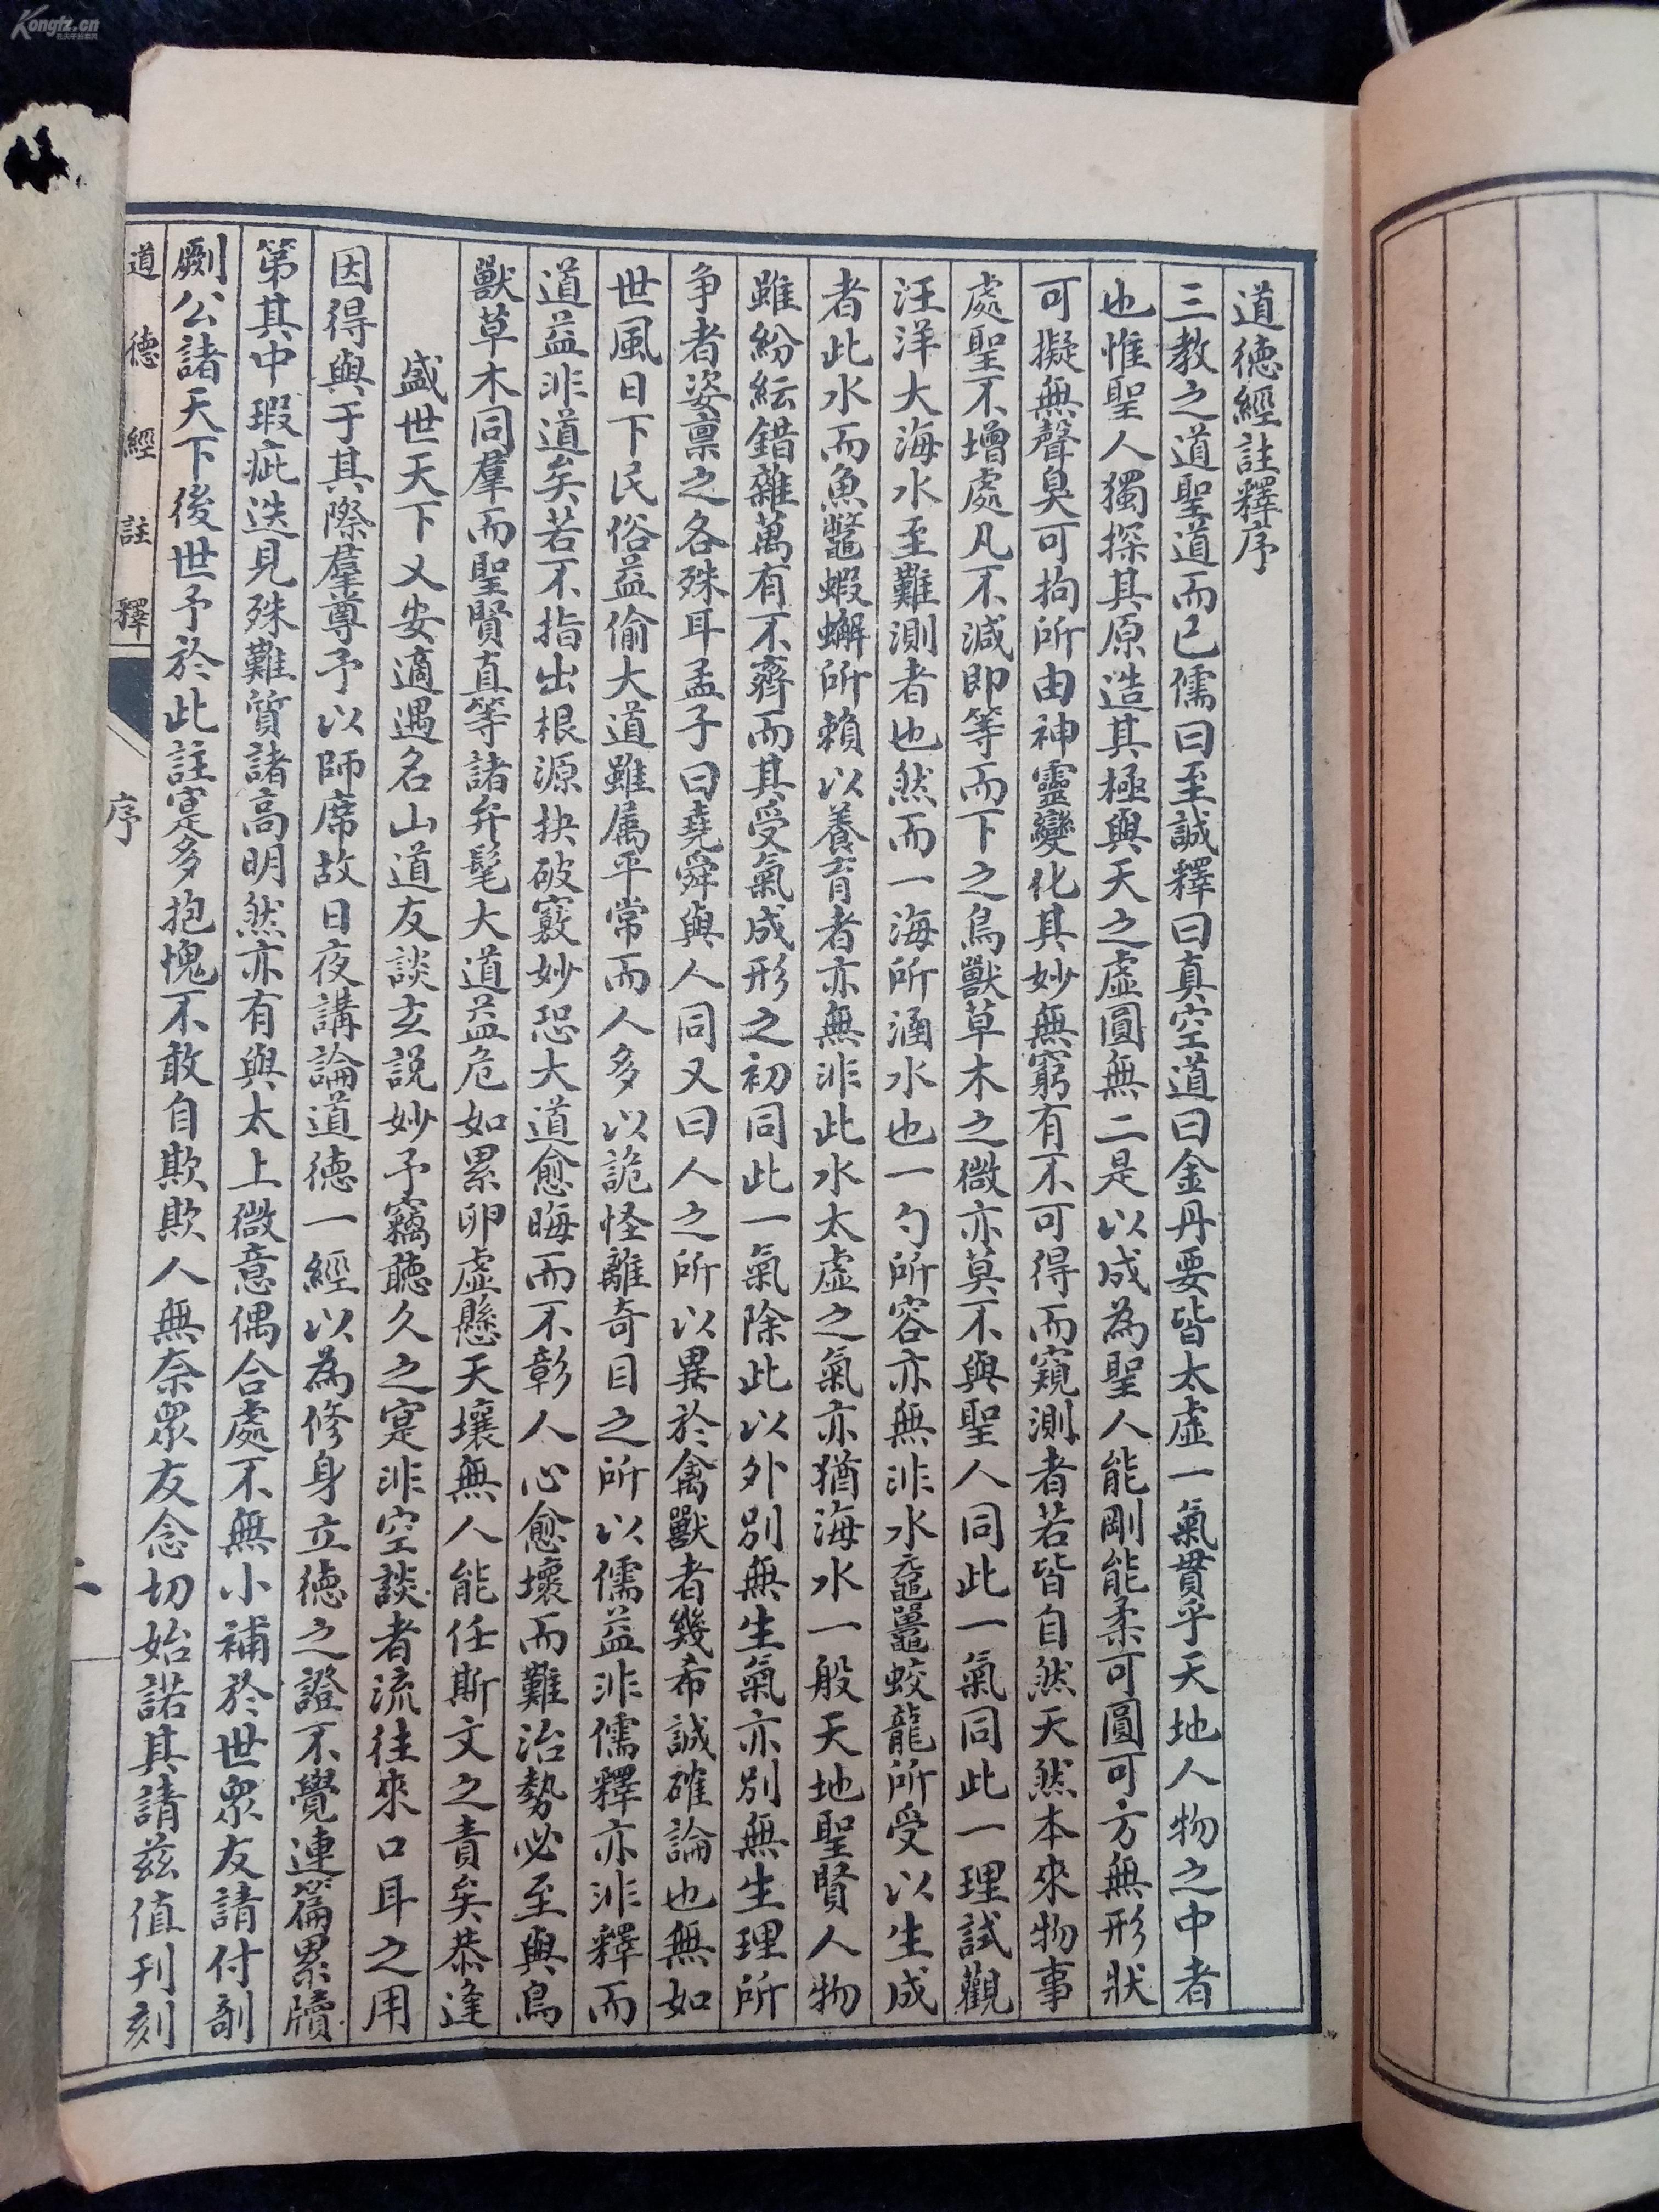 Kongfz.cn
道德經註釋序
三教之道聖道而已儒曰至誠釋曰真空道曰金丹要皆太虛一氣貫乎天地人物之中者
也惟聖人獨探其原造其極與天之虛圓無二是以成為聖人能剛能柔可圓可方無形狀
可擬無聲臭可拘所由神靈變化其妙無窮有不可得而窺測者若皆自然天然本來物事
處聖不增處凡不減即等而下之鳥獸草木之微亦莫不與聖人同此一氣同此一理試觀
汪洋大海水至難測者也然而一海所涵水也一勺所容亦無非水黿鼉蛟龍所受以生成
者此水而魚鼈蝦蠏所賴以養育者亦無非此水太虛之氣亦猶海水一般天地聖賢人物
雖紛紜錯雜萬有不齊而其受氣成形之初同此一氣除此以外別無生氣亦別無生理所
争者姿稟之各殊耳孟子曰堯舜與人同又曰人之所以異於禽獸者幾希誠確論也無如
世風日下民俗益偷大道雖属平常而人多以詭怪離奇目之所以儒益非儒釋亦非釋而
道益非道矣若不指出根源抉破竅妙恐大道愈晦而不彰人心愈壞而難治勢必至與鳥
獸草木同羣而聖賢直等諸弁髦大道益危如累卵虛懸天壤無人能任斯文之責矣恭逢
盛世天下乂安適遇名山道友談玄説妙予竊聽久之寔非空談者流往來口耳之用
因得與于其際羣尊予以師席故日夜講論道德一經以為修身立德之證不覺連篇累牘
第其中瑕疵迭見殊難質諸高明然亦有與太上微意偶合處不無小補於世眾友請付剞
劂公諸天下後世予於此註寔多抱愧不敢自欺欺人無奈眾友念切始諾其請茲值刊刻
道德經註釋
序